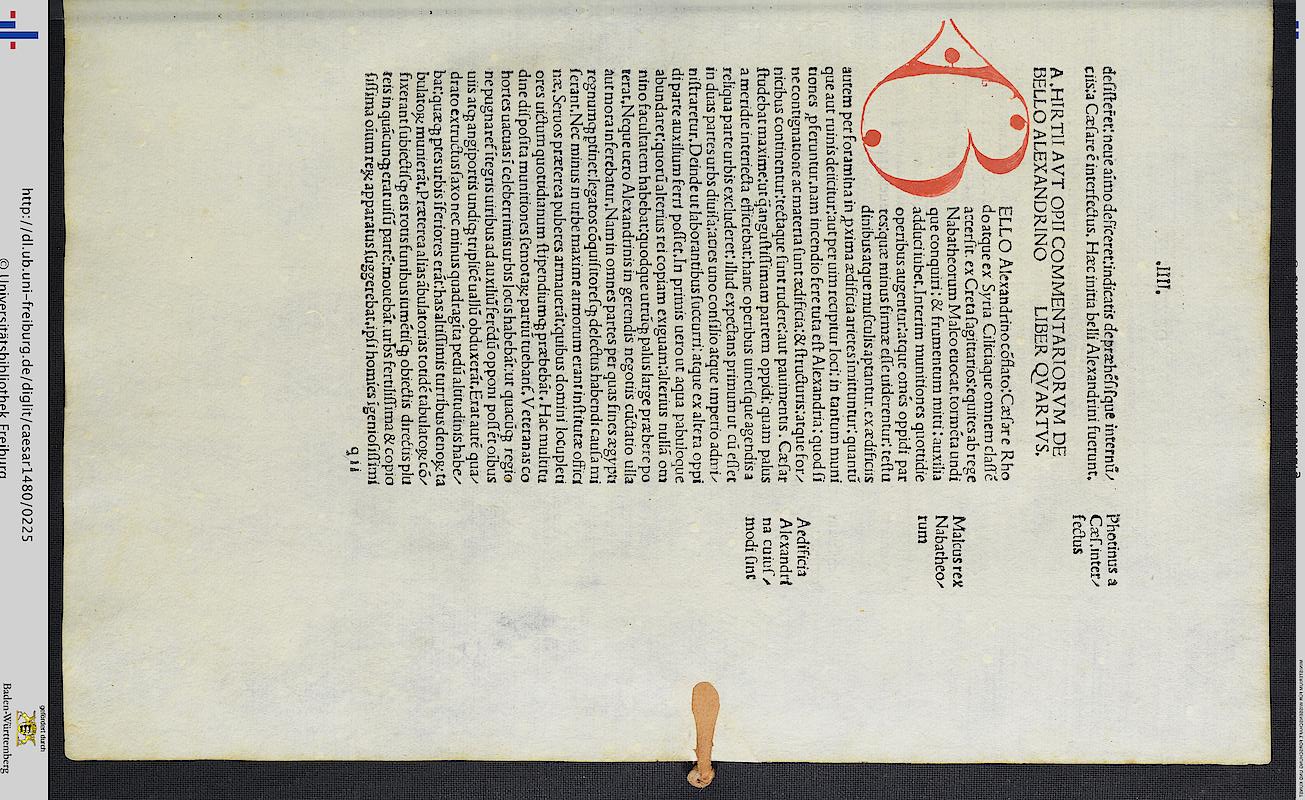 .IIII.
desisteret: neue aīmo deficeret: indicatis depræhēsisque internū/
ciis: a Cæsare ē interfectus. Hæc initia belli Alexandrini fuerunt.
Photinus a
Cæs. inter/
fectus
A. HIRTII AVT OPII COMMENTARIORVM DE
BELLO ALEXANDRINO LIBER QVARTVS.
BELLO Alexandrino cōflato: Cæsare Rho
do atque ex Syria Ciliciaque omnem classē
accersit. ex Creta sagittarios: equites ab rege
Nabatheorum Malco euocat. tormēta undi
que conquiri: & frumentum mitti: auxilia
adduci iubet. Interim munitiones quottidie
operibus augentur: atque omēs oppidi par
tes: quæ minus firmæ esse uiderentur: testu
dinibus atque musculis aptantur. ex ædificiis
Malcus rex
Nabatheo/
rum
autem per foramina in proxima ædificia arietes īmittuntur: quantū
que aut ruinis deiicitur: aut per uim recipitur loci: in tantum muni
tiones proferuntur. nam incendio fere tuta est Alexandria: quod si
ne contignatione ac materia sunt ædificia: & structuris: atque for/
nicibus continentur: tectaque sunt rudere: aut pauimentis. Cæsar
studebat maxime: ut q̄ angustissimam partem oppidi: quam palus
a meridie interiecta efficiebat: hanc operibus uineisque agendis a
reliqua parte urbis excluderet: illud expectans primum ut cū esset
in duas partes urbs diuisa: acies uno consilio atque imperio admi/
nistraretur. Deinde ut laborantibus succurri: atque ex altera oppi
di parte auxilium ferri posset. In primis uero ut aqua pabuloque
abundaret: quorū alterius rei copiam exiguam: alterius nullā om
nino facultatem habebat: quodque utrūq; palus large præbere po
terat. Neque uero Alexandrinis in gerendis negotiis cūctatio ulla
aut mora inferebatur. Nam in omnes partes per quas fines ægypti
regnumq; ptinet: legatos cōquisitoresq; delectus habendi causa mi
serant. Nec minus in urbe maxime armorum erant institutæ offici
næ. Seruos præterea puberes armauerāt: quibus domini locupleti
ores uictum quotidianum stipendiumq; præbebāt. Hac multitu
dine disposita munitiones semotaꝝ partiū tuebanť. Veteranas co
hortes uacuas ī celeberrimis urbis locis habebāt: ut quacūq; regio
ne pugnaref̄ itegris uiribus ad auxiliū ferēdū opponi possēt oībus
uiis atq; angiportis undiq; triplicē uallū obduxerāt. Erat autē qua/
drato extructus saxo nec minus quadragīta pedū altitudinis habe/
bat. quæq; ptes urbis īferiores erāt: has altissimis turribus denoꝝ ta
bulatoꝝ munierāt. Præterea alias ābulatorias totidē tabulatoꝝ cō/
fixerant subiectisq; eis rotis funibus iumētisq; obiectis directis plu
teis in quācūq; erat uisū partē: mouebāt. urbs fertilissima & copio
sissima oīum reꝝ apparatus suggerebat. ipsi homīes īgeniosissimi
Aedificia
Alexandri
na cuius /
modi sint
q ii
http://dl.ub.uni-freiburg.de/diglit/caesar1480/0225
© Universitätsbibliothek Freiburg
gefördert durch
Baden-Württemberg